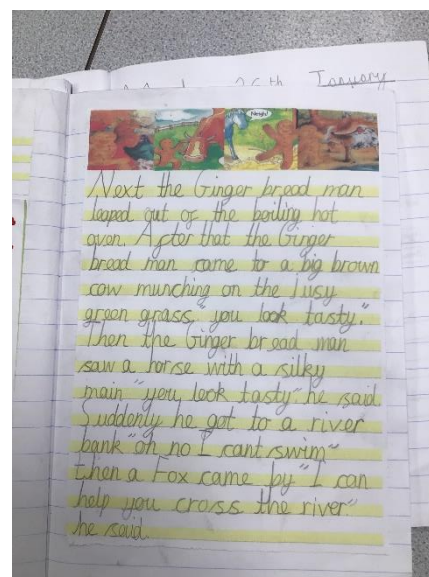 26th January
Neigh!
Next the Ginger bread man
leaped out of the boiling hot
oven. After that the Ginger
bread man came to a big brown
cow munching on the lusy
green grass "you look tasty".
Then the Ginger bread man
saw a horse with a silky
main "you look tasty" he said
Suddenly he got to a river
bank "oh no I cant swim"
then a Fox came by "I can
help you cross the river"
he said.